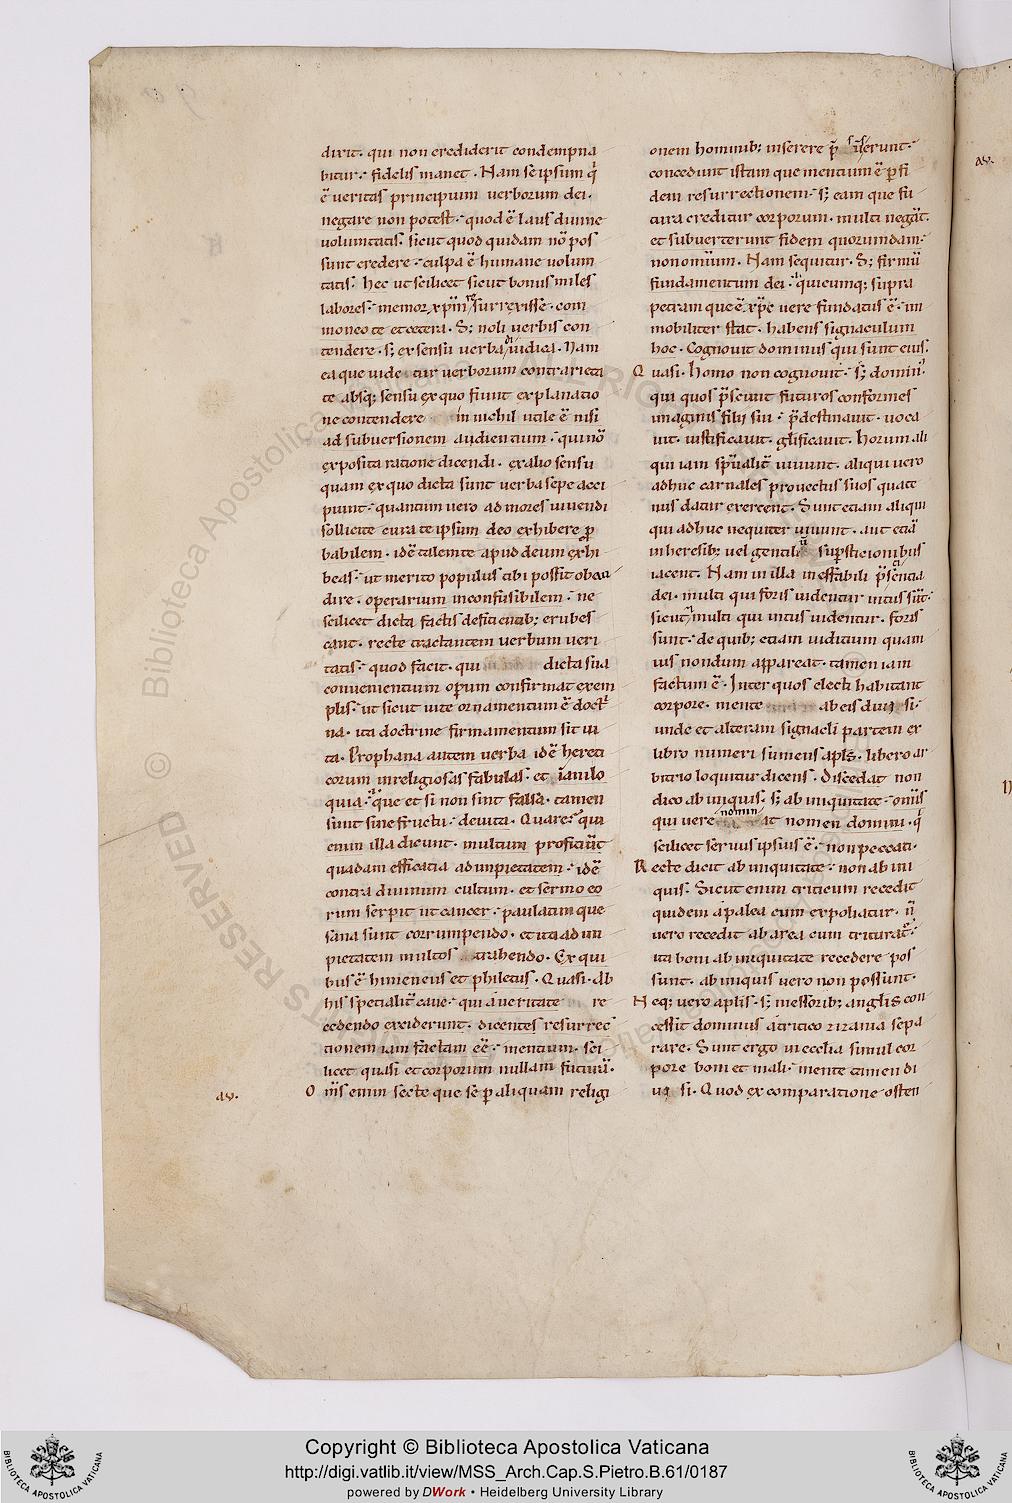 dixit. qui non crediderit condempna
bitur. fidelis manet. Nam se ipsum q
ē veritas principium verborum dei.
negare non potest. quod ē laus diuine
voluntatis. sicut quod quidam nō pos
sunt credere. culpa ē humane volun
tatis. hec ut scilicet sicut bonus miles
labores. memor xp̄m surrexisse. com
moneo te et cetera. S; noli verbis con
tendere. s; ex sensu verba diiudica. Nam
ea que uide tur verborum contrarieta
te absq; sensu ex quo fiunt explanatio
ne contendere in nichil utile ē nisi
ad subuersionem audientium. qui nō
exposita ratione dicendi. ex alio sensu
quam ex quo dicta sunt verba sepe acci
piunt. quantum uero ad mores uiuendi
sollicite cura te ipsum deo exhibere p
babilem. idē talem te apud deum exhi
beas. ut merito populus tibi possit oboe
dire. operarium inconfusibilem. ne
scilicet dicta factis deficientib; erubes
cant. recte tractantem verbum ueri
tatis. quod facit. qui dicta sua
conuenientium opum confirmat exem
plis. ut sicut uite ornamentum ē doct
na. ita doctrine firmamentum sit ui
ta. Prophana autem uerba idē hereti
corum inreligiosas fabulas. et īaniloˍ
quia. que et si non sint falsa. tamen
sunt sine fructu. deuita. Quare. qui
enim illa dicunt. multum proficiūt
quadam efficatia ad impietatem. idē
contra diuinum cultum. et sermo eo
rum serpit ut cancer. paulatim que
sana sunt corrumpendo. et ita ad im
pietatem multos trahendo. Ex qui
bus ē himeneus et philetus. Quasi. Ab
his specialit̄ caue. qui a ueritate re
cedendo exciderunt. dicentes resurrec
tionem iam factam eē. mentium. sci
licet quasi et corporum nullam futurā.
av. Om̄s enim secte que se p aliquam religi
onem hominib; inserere p̄ s̄userunt.
concedunt istam que mentium ē p fi
dem resurrectionem. s; eam que fu
tura creditur corporum. multi negāt.
et subuerterunt fidem quorumdam.
non omium. Nam sequitur. S; firmū
fundamentum dei. quicumq; supra
petram que ē xp̄c uere fundatus ē. im
mobiliter stat. habens signaculum
hoc. Cognouit dominus qui sunt eius.
Quasi. Homo non cognouit. s; domin
qui quos p̄sciuit futuros conformes
imaginis filij sui. p̄destinauit. uoca
uit. iustificauit. glificauit. Horum ali
qui iam sp̄ualit̄ uiuunt. aliqui uero
adhuc carnales prouectus suos quate
nus datur exercent. Sunt etiam aliqui
qui adhuc nequiter uiuunt. aut etiā
in heresib; uel gentiliū supsticionibus
iacent. Nam in illa ineffabili p̄sentia
dei. multi qui foris uidentur intus sūt.
sicut multi qui intus uidentur. foris
sunt. de quib; etiam iuditium quam
uis nondum appareat. tamen iam
factum ē. Inter quos electi habitant
corpore. mente ab eis diui si.
unde et alteram signacli partem ex
libro numeri sumens apls. libero ar
bitrio loquitur dicens. Discedat non
dico ab iniquis. s; ab iniquitate. omīs
qui uere nominat nomen domini. q
scilicet seruus ipsius ē. non peccati.
Recte dicit ab iniquitate. non ab ini
quis. Sicut enim triticum recedit
quidem a palea cum expoliatur. ñ
uero recedit ab area cum triturat̄.
ita boni ab iniquitate recedere pos
sunt. ab iniquis uero non possunt.
Neq; uero aplis. s; messorib; anglis con
cessit dominus a tritico zizania sepa
rare. Sunt ergo in ecclia simul cor
pore boni et mali. mente tamen di
ui si. Quod ex comparatione osten
av.
Copyright © Biblioteca Apostolica Vaticana
http://digi.vatlib.it/view/MSS_Arch.Cap.S.Pietro.B.61/0187
powered by DWork • Heidelberg University Library
BIBLIOTECA APOSTOLICA VATICANA
BIBLIOTECA APOSTOLICA VATICANA
© Biblioteca Apostolica Vaticana ALL RIGHTS RESERVED